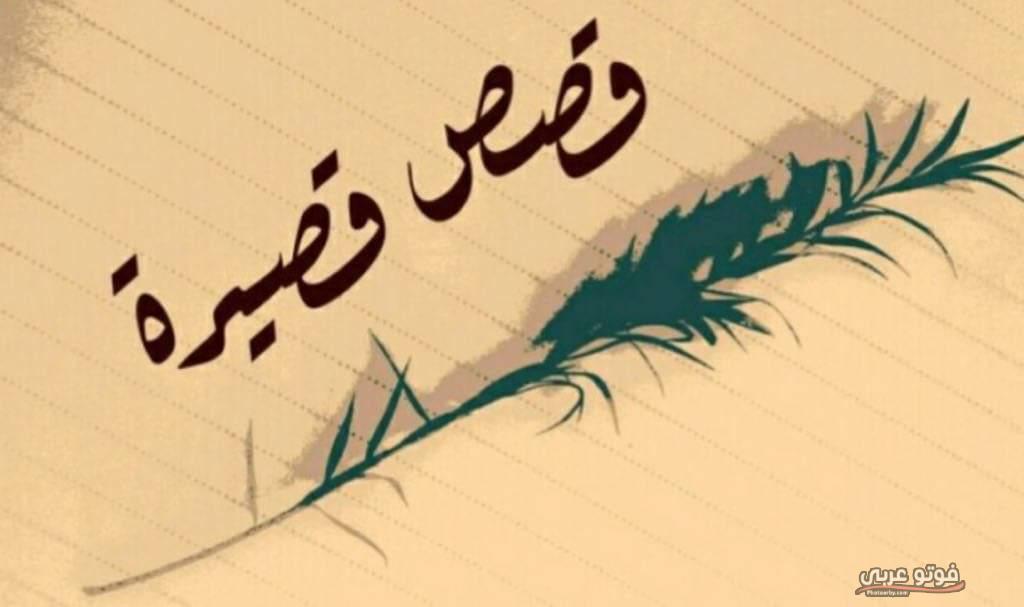 قصص قصيرة
فوتو عربي
Photoarby.com